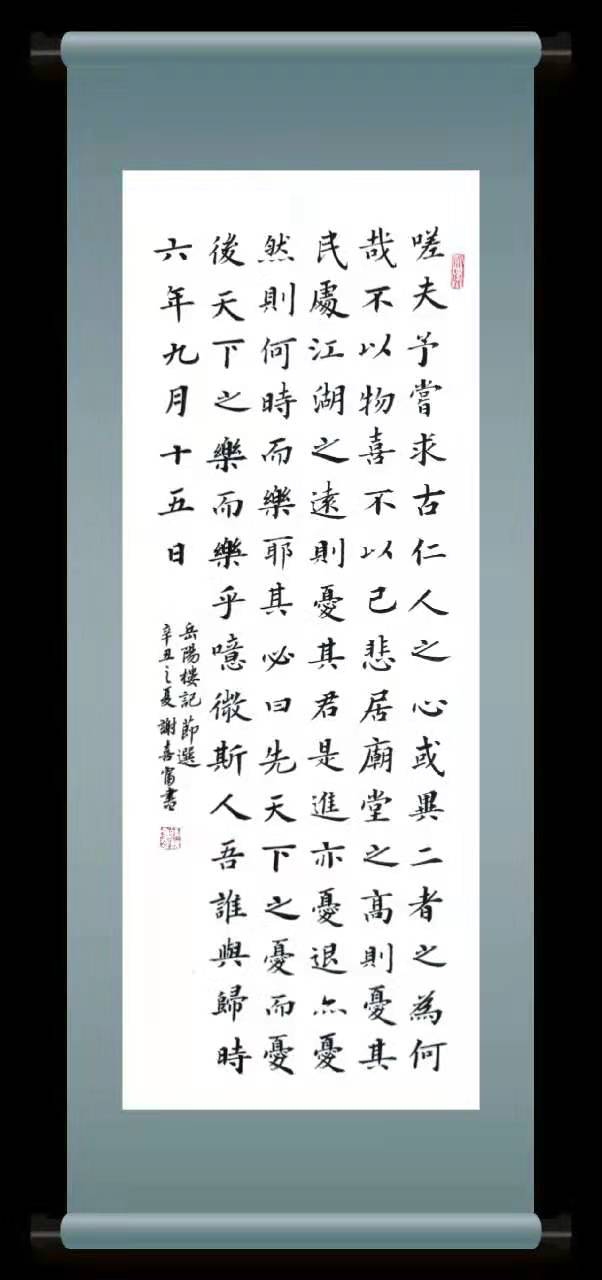 嗟夫予嘗求古仁人之心或異二者之為何
哉不以物喜不以己悲居廟堂之高則憂其
民處江湖之遠則憂其君是進亦憂退亦憂
然則何時而樂耶其必曰先天下之憂而憂
後天下之樂而樂乎噫微斯人吾誰與歸時
六年九月十五日
岳陽樓記節選
辛丑之夏謝喜富書